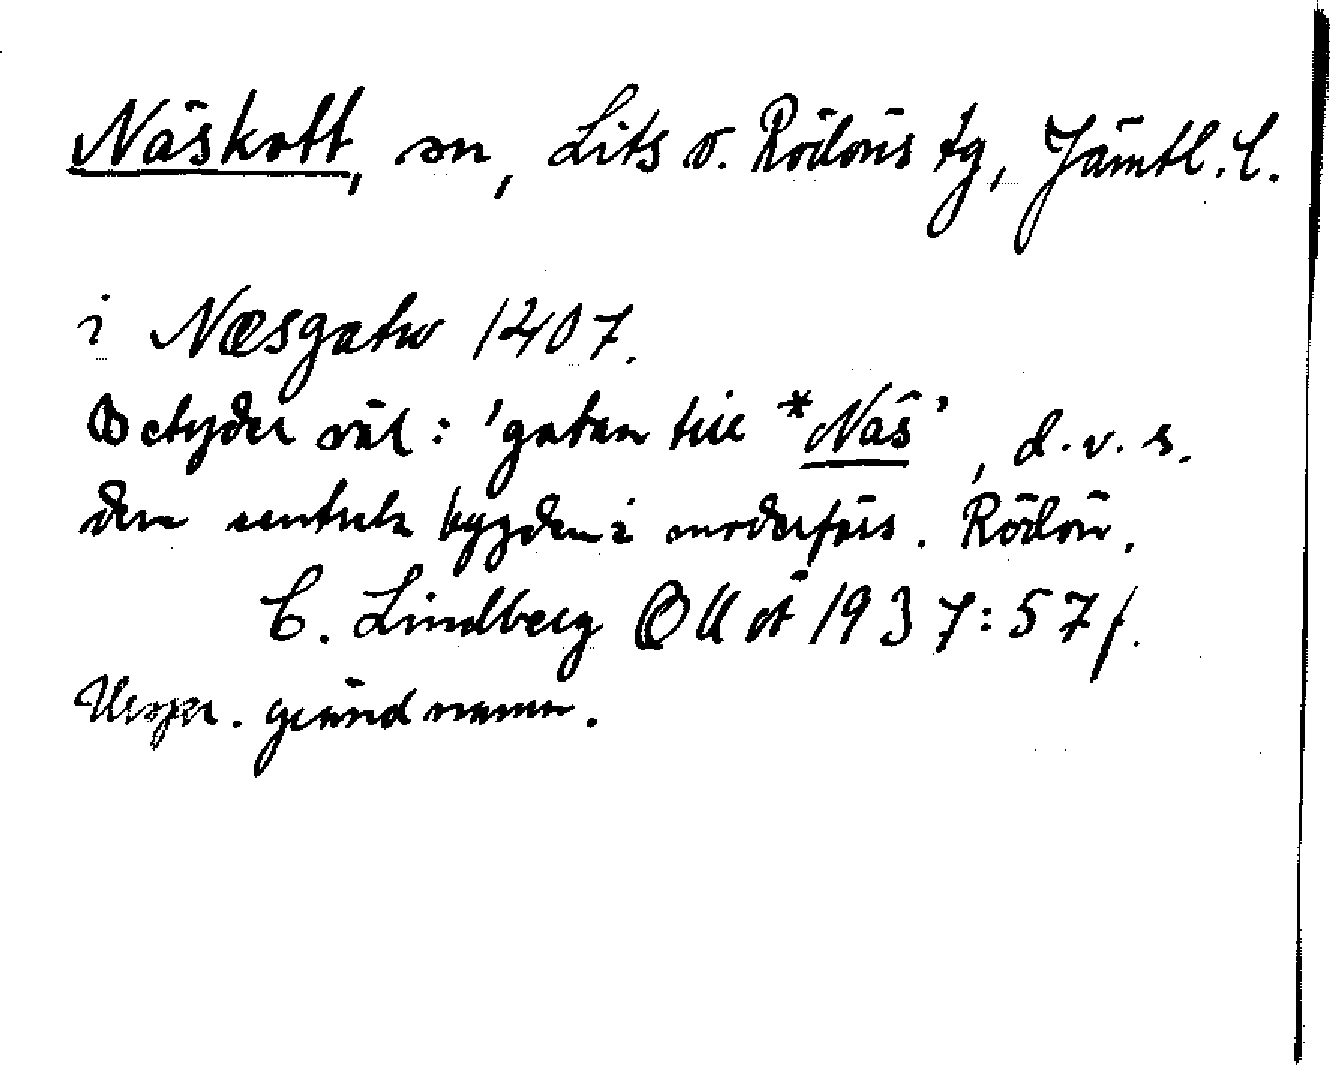 Näskott, sn, Lits o. Rödöns tg, Jämtl. l.
i Næsgatw 1407.
Betyder väl: 'gatan till *Näs', d.v.s.
den centrala bygden i moderförs. Rödön.
C. Lindberg 1937: 57 f.
Urspr. grändnamn.